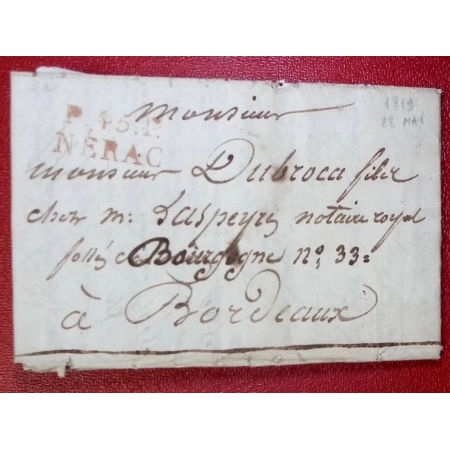 P.45.P.
NERAC
1819
28 MAI
Monsieur
monsieur Dubroca fils
chez m: Laspeyre notaire royal
fossés de Bourgogne n° 33=
à Bordeaux